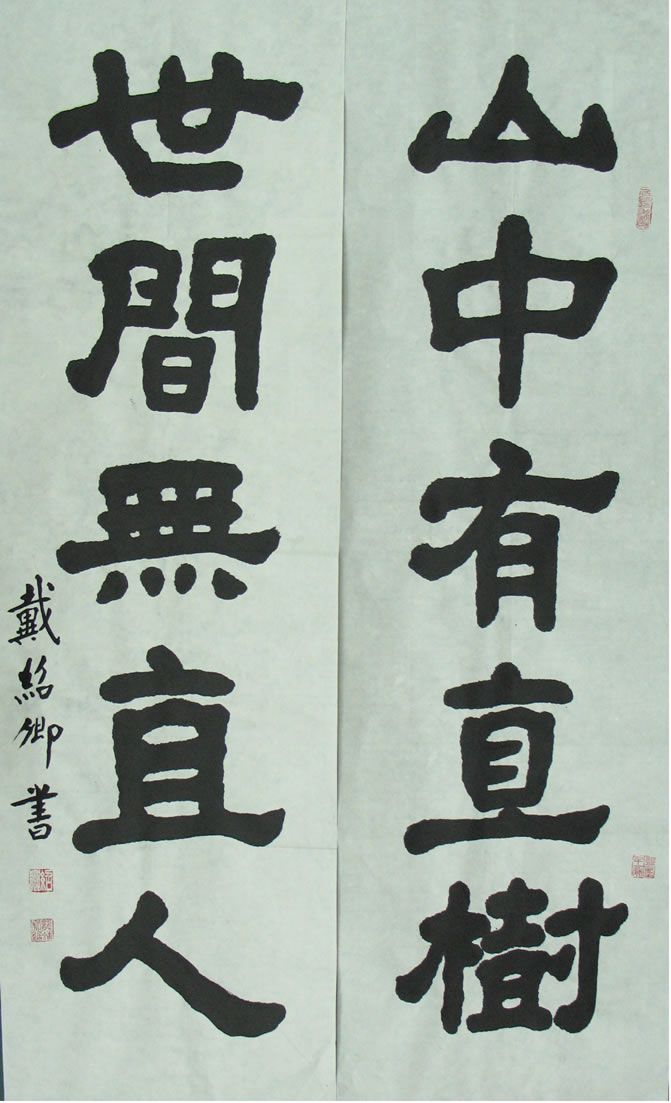 山中有直樹
世間無直人
戴紹卿書